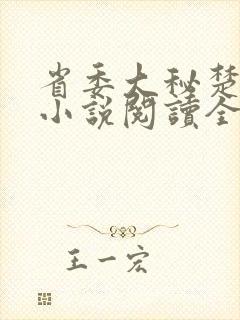 省委大秘楚
小説閱讀全
王一宏